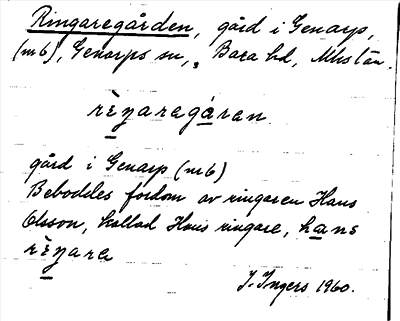 Ringaregården, gård i Genarp,
(nr 6), Genarps sn, Bara hd, Mlhs län.
rìŋaragáran
gård i Genarp (nr 6)
Beboddes fordom av ringaren Hans
Olsson, kallad Hans ringare, hans
rìŋara
I. Ingers 1960.